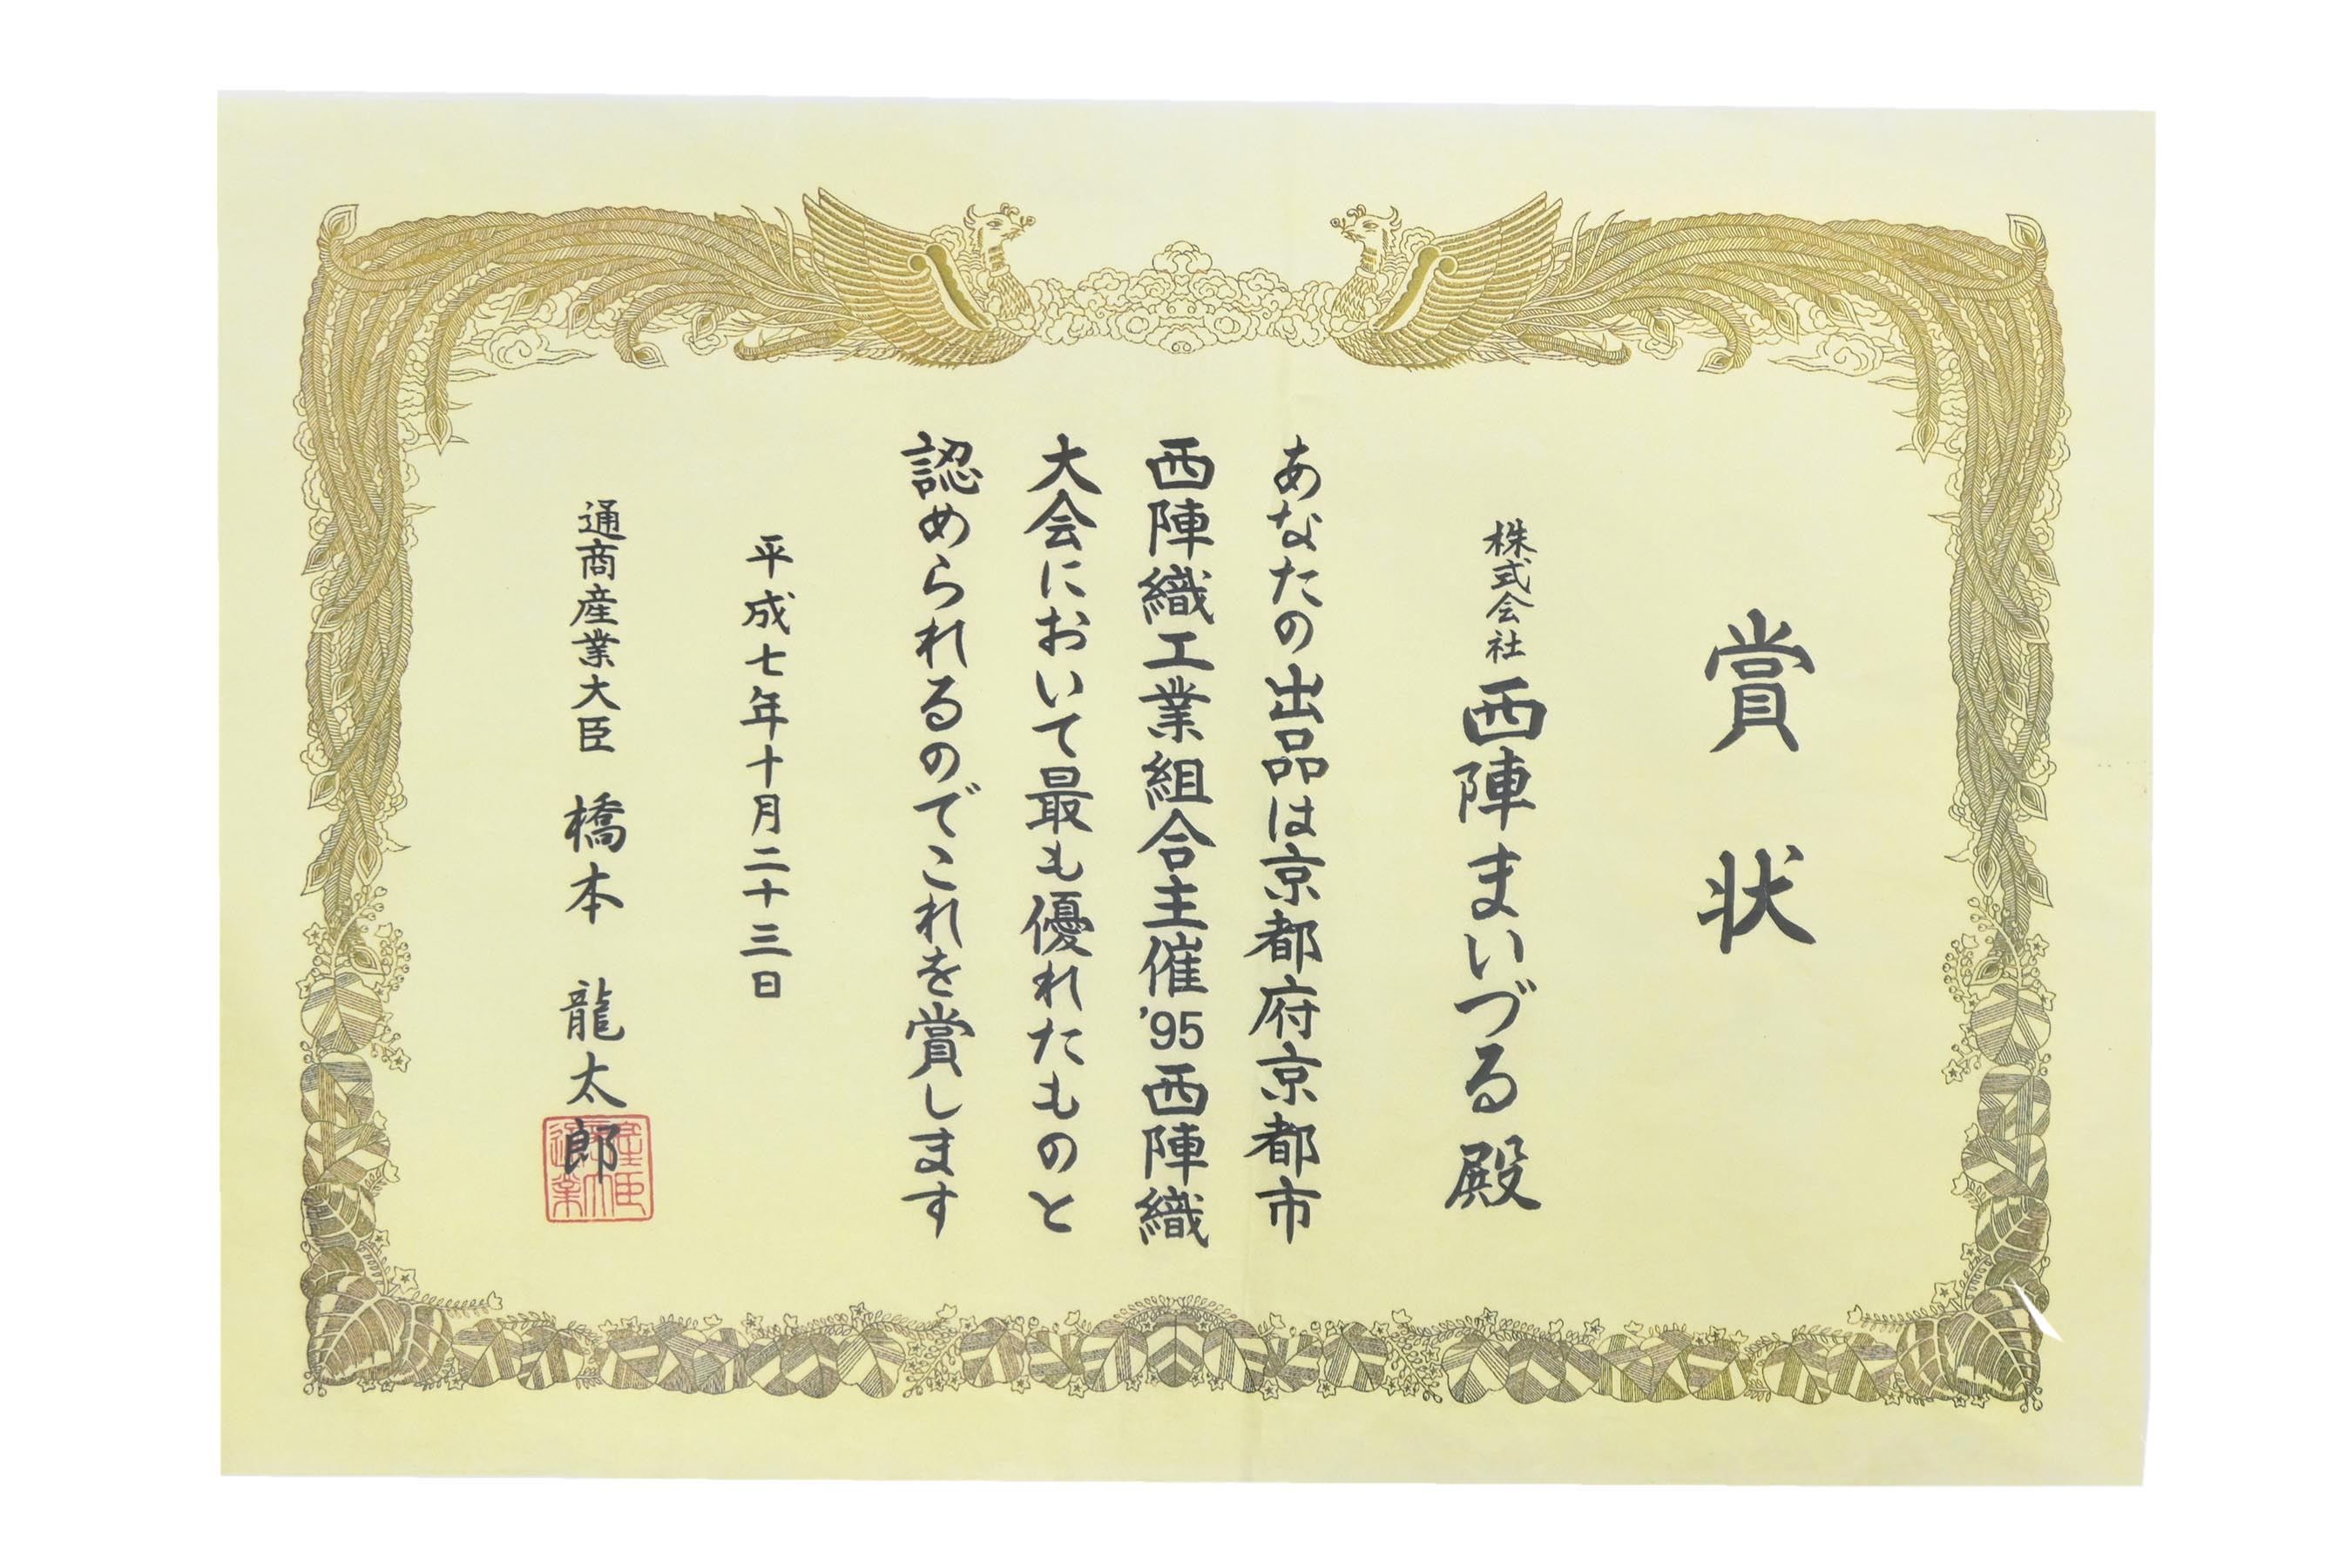 賞状
株式会社 西陣まいづる 殿
あなたの出品は京都府京都市
西陣織工業組合主催'95西陣織
大会において最も優れたものと
認められるのでこれを賞します
平成七年十月二十三日
通商産業大臣 橋本 龍太郎